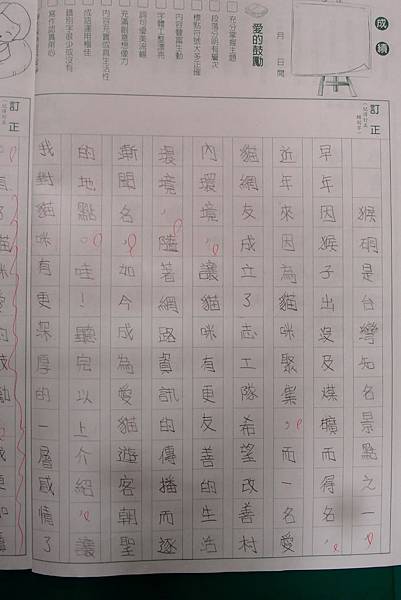 成績
月 日 閱
愛的鼓勵
□充分掌握主題
□段落分明有層次
□標點符號大多正確
□內容豐富生動
□字體工整漂亮
□詞句優美流暢
□充滿創意想像力
□成語運用極佳
□錯別字很少或沒有
□寫作認真用心
訂正
猴硐是台灣知名景點之一,
早年因猴子出沒及煤礦而得名,
近年來因為貓咪聚集,而一名愛
貓網友成立了志工隊希望改善村
內環境,讓貓咪有更友善的生活
環境,隨著網路資訊的傳播而逐
漸聞名,如今成為愛貓遊客朝聖
的地點。哇!聽完以上介紹,讓
我對貓咪有更深厚的一層感情了
訂正